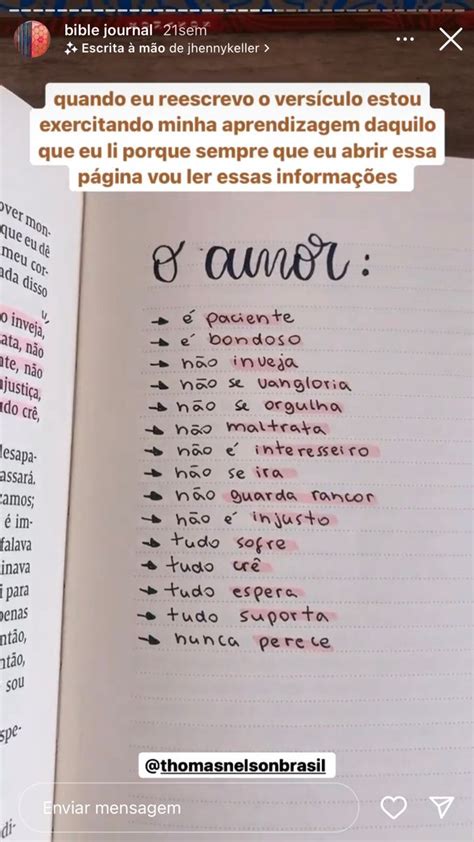 bible journal 21sem
Escrita à mão de jhennykeller >
quando eu reescrevo o versículo estou
exercitando minha aprendizagem daquilo
que eu li porque sempre que eu abrir essa
página vou ler essas informações
over mon-
que eu dê
meu cor-
ada disso
o inveja,
ata, não
nte, não
njustiça,
udo crê,
desapa-
assará.
camos;
é im-
falava
inava
i para
penas
ntão,
ntão,
sou
spe-
di-
o amor:
→ é paciente
→ é bondoso
→ não inveja
→ não se vangloria
→ não se orgulha
→ não maltrata
→ não é interesseiro
→ não se ira
→ não guarda rancor
→ não é injusto
→ tudo sofre
→ tudo crê
→ tudo espera
→ tudo suporta
→ nunca perece
@thomasnelsonbrasil
Enviar mensagem